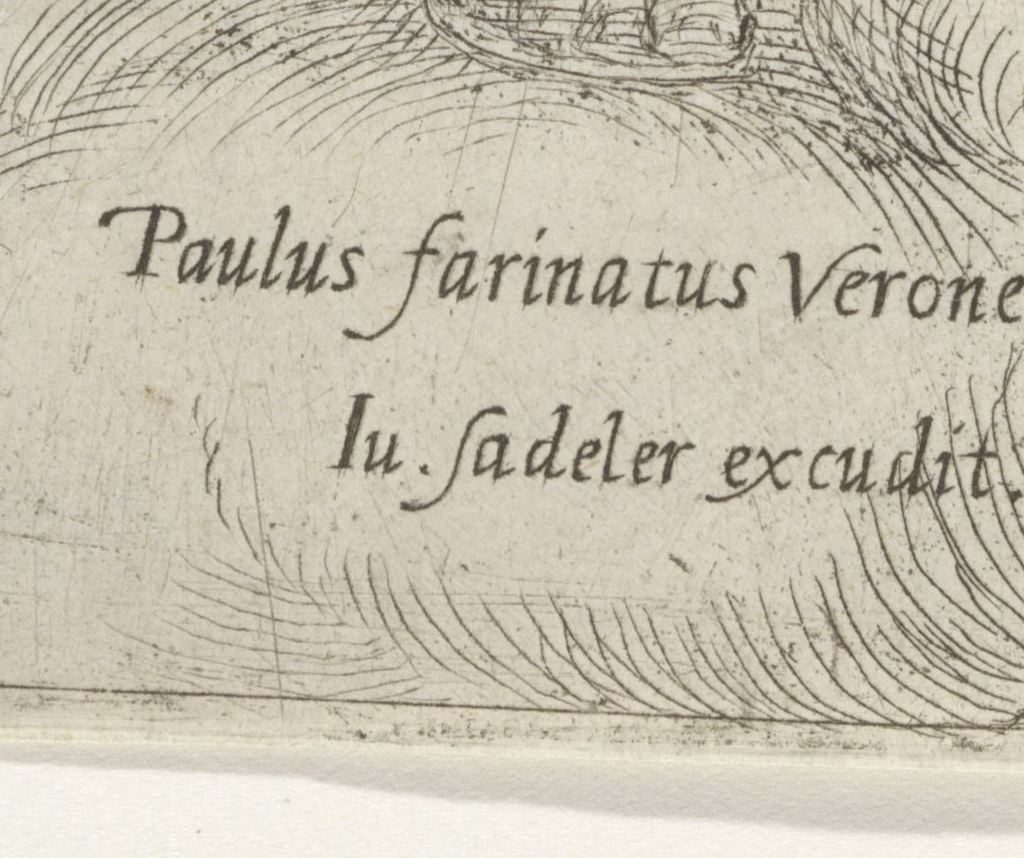 Paulus farinatus Verone
Iu. ſadeler excudit.